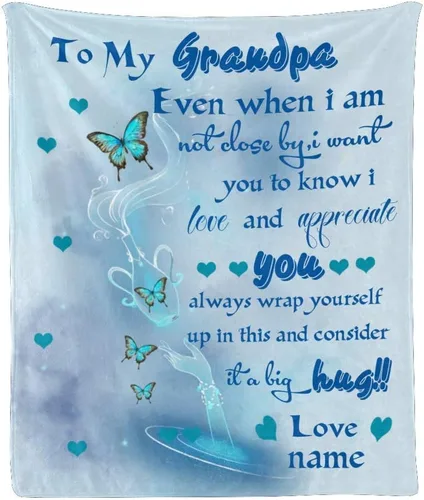 To My Grandpa
Even when i am
not close by,i want
you to know i
love and appreciate
you
always wrap yourself
up in this and consider
it a big hug!!
Love
name